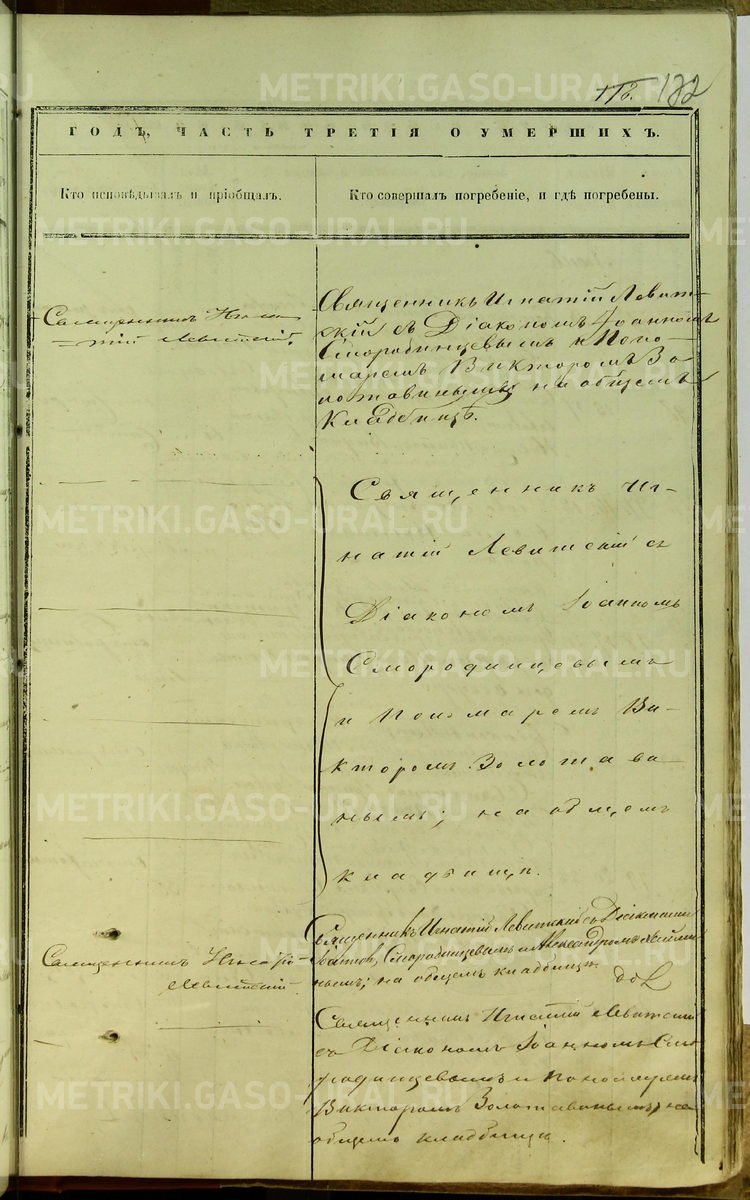 118. 122
ГОДЪ, ЧАСТЬ ТРЕТІЯ О УМЕРШИХЪ.
Кто исповѣдывалъ и пріобщалъ.
Кто совершалъ погребеніе, и гдѣ погребены.
Священникъ Игна-
тій Левитскій.
Священникъ Игнатій Левит-
скій съ Діакономъ Іоанномъ
Смородинцевымъ и Поно-
маремъ Викторомъ Зо-
лотавинымъ; на общемъ
Кладбищѣ.
Священникъ Иг-
натій Левитскій съ
Діакономъ Іоанномъ
Смородинцевымъ
и Пономаремъ Ви-
кторомъ Золотави-
нымъ; на общемъ
кладбищѣ.
Священникъ Игнатій
Левитскій.
Священникъ Игнатій Левитскій съ Діаконами
Смородинцевымъ и Александромъ
нымъ; на общемъ кладбищѣ.
Священникъ Игнатій Левитскій
съ Діакономъ Іоанномъ Смо-
родинцевымъ и Пономаремъ
Викторомъ Золотавинымъ; на
общемъ кладбищѣ.
METRIKI.GASO-URAL.RU